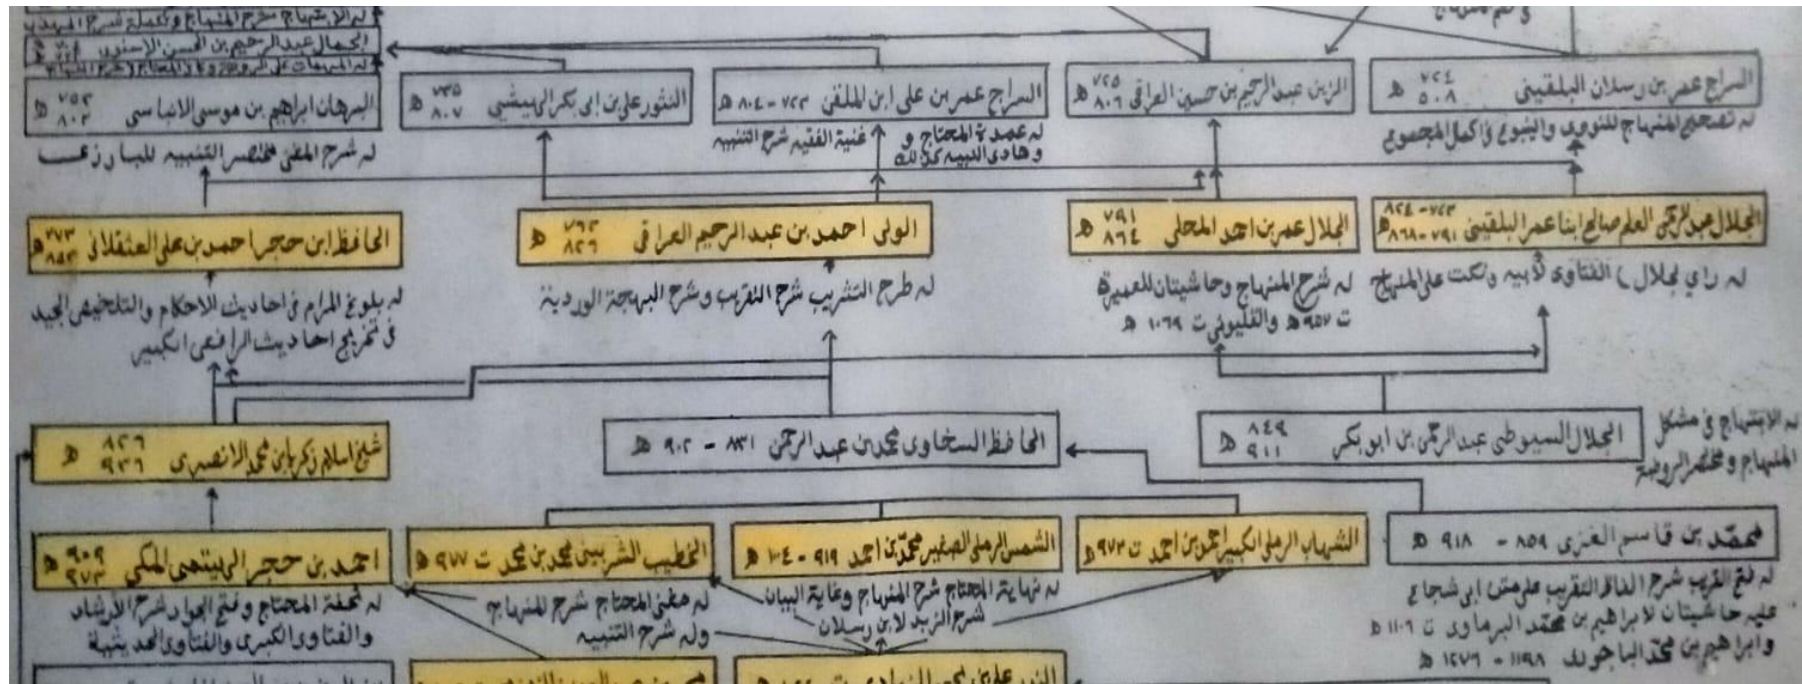 في
له الابتهاج شرح المنهاج وتكملة شرح المهذب
الجمال عبدالرحيم بن الحسن الاسنوى
له المهمات على الروضة
السراج عمر بن رسلان البلقينى ٧٢٤ ٥٠٨ ھ
له تصحيح المنهاج للنووى والينبوع في اكمال المجموع
الزين عبدالرحيم بن حسين العراقى ٧٢٥ ٨٠٦ ھ
السراج عمر بن على ابن الملقن ٧٢٣ - ٨٠٤ ھ
له عمدة المحتاج و غنية الفقيه شرح التنبيه
و هادى النبيه كذلك
النور على بن ابى بكر الهيثمى ٧٣٥ ٨٠٧ ھ
البرهان ابراهيم بن موسى الانباسى ٧٥٣ ٨٠٢ ھ
له شرح المفتى مختصر التنبيه للبارزى
الجلال عبدالرحمن العلم صالح ابنا عمر البلقينى ٧٦٣-٨٢٤ ٧٩١-٨٦٨ ھ
له راي لجلال ) الفتاوى لأبيه ونكت على المنهاج
الجلال عمر بن احمد المحلى ٧٩١ ٨٦٤ ھ
له شرح المنهاج وحاشيتان للعميرة
ت ٩٥٧ ھ والقليوبى ت ١٠٦٩ ھ
الولى احمد بن عبد الرحيم العراقى ٧٦٢ ٨٢٦ ھ
له طرح التثريب شرح التقريب وشرح البهجة الوردية
الحافظ ابن حجر احمد بن على العسقلانى ٧٧٣ ٨٥٢ ھ
له بلوغ المرام فى احاديث الاحكام والتلخيص الجيد
فى تخريج احاديث الرافعى الكبير
الجلال السيوطى عبدالرحمن بن ابو بكر ٨٤٩ ٩١١ ھ
له الابتهاج فى مشكل
المنهاج ومختصر الروضة
الحافظ السخاوى محمد بن عبد الرحمن ٨٣١ - ٩٠٢ ھ
شيخ اسلام زكريا بن محمد الانصرى ٨٢٦ ٩٣٦ ھ
محمّد بن قاسم الغزى ٨٥٩ - ٩١٨ ھ
له فتح القريب شرح الفاظ التقريب على متن ابى شجاع
عليه حاشيتان لابراهيم بن محمّد البرماوى ت ١١٠٦ ھ
وابراهيم بن محمّد الباجورى ١١٩٨ - ١٢٧٦ ھ
الشهاب الرملى الكبير احمد بن احمد ت ٩٧٣ ھ
الشمس الرملى الصغير محمّد بن احمد ٩١٩ - ١٠٠٤ ھ
له نهاية المحتاج شرح المنهاج وغاية البيان
شرح الزبد لابن رسلان
الخطيب الشربينى محمد بن محمد ت ٩٧٧ ھ
له مغنى المحتاج شرح المنهاج
وله شرح التنبيه
احمد بن حجر الهيتمى المكى ٩٠٩ ٩٧٣ ھ
له تحفة المحتاج وفتح الجواد شرح الارشاد
والفتاوى الكبرى والفتاوى الحديثية
النور على بن يحيى الزيادى ت